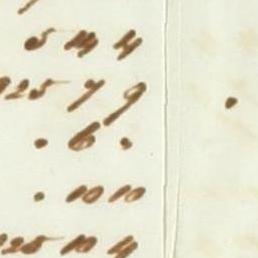 5 14 4
925 7 9
. 6 .
. 10 10
925 10 4